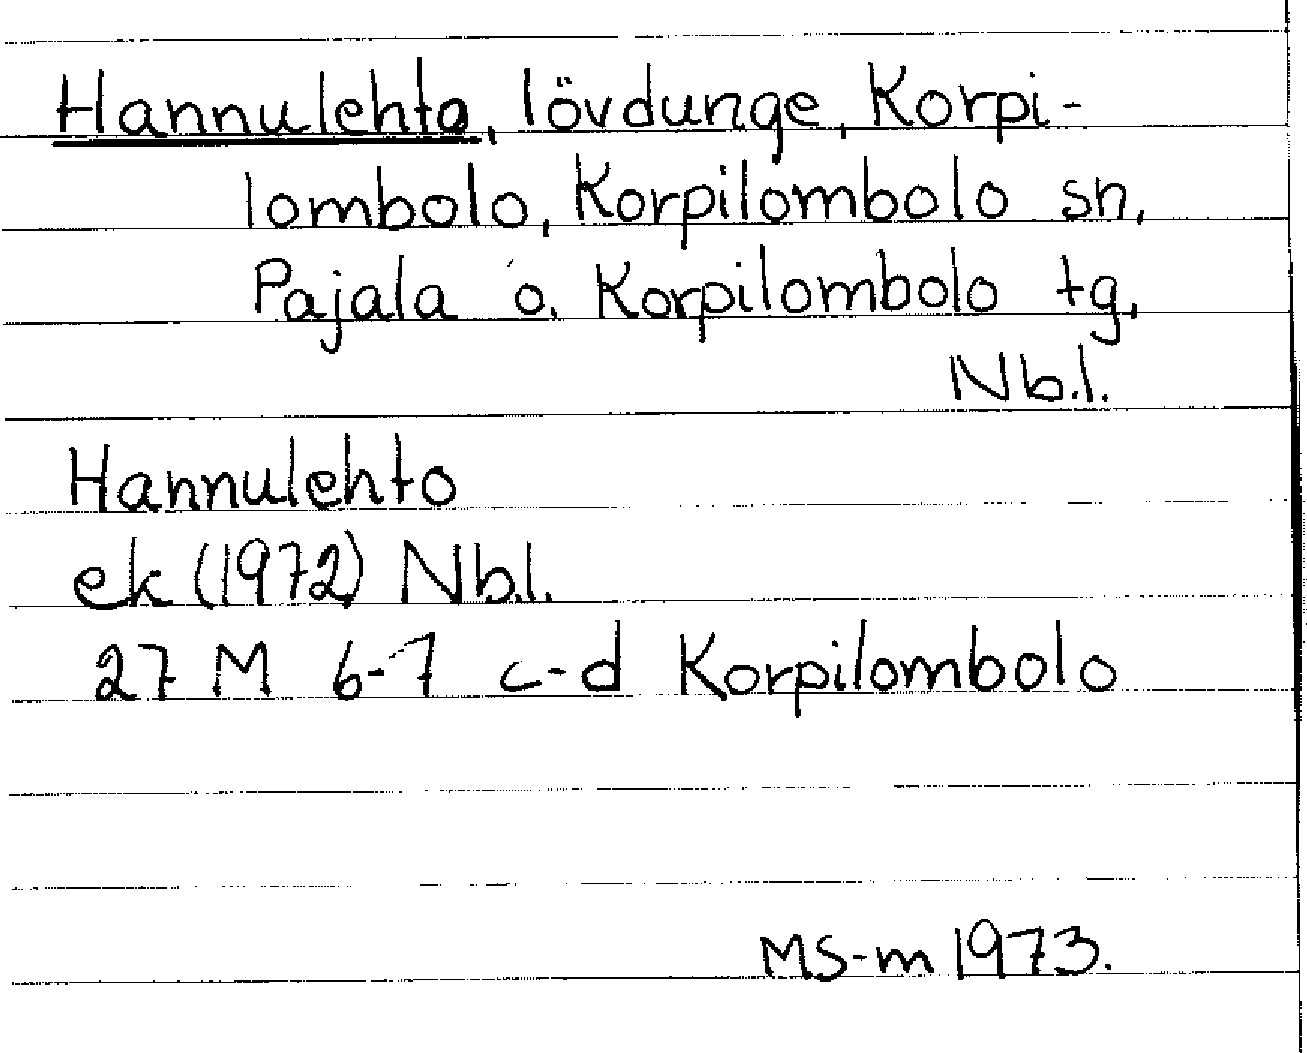 Hannulehto, lövdunge, Korpi-
lombolo, Korpilombolo sn,
Pajala o. Korpilombolo tg,
Nb.l.
Hannulehto
ek (1972) Nb.l.
27 M 6-7 c-d Korpilombolo
MS-m 1973.